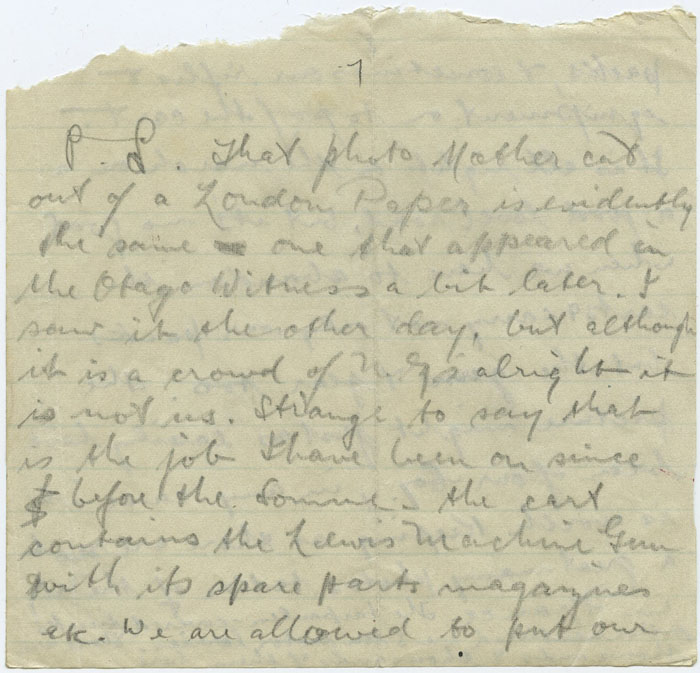 7
P.S. That photo Mother cut
out of a London Paper is evidently
the same one that appeared in
the Otago Witness a bit later. I
saw it the other day, but although
it is a crowd of N.Z's alright it
is not us. Strange to say that
is the job I have been on since
before the Somme. the cart
contains the Lewis Machine Gun
with its spare parts magazines
etc. We are allowed to put our